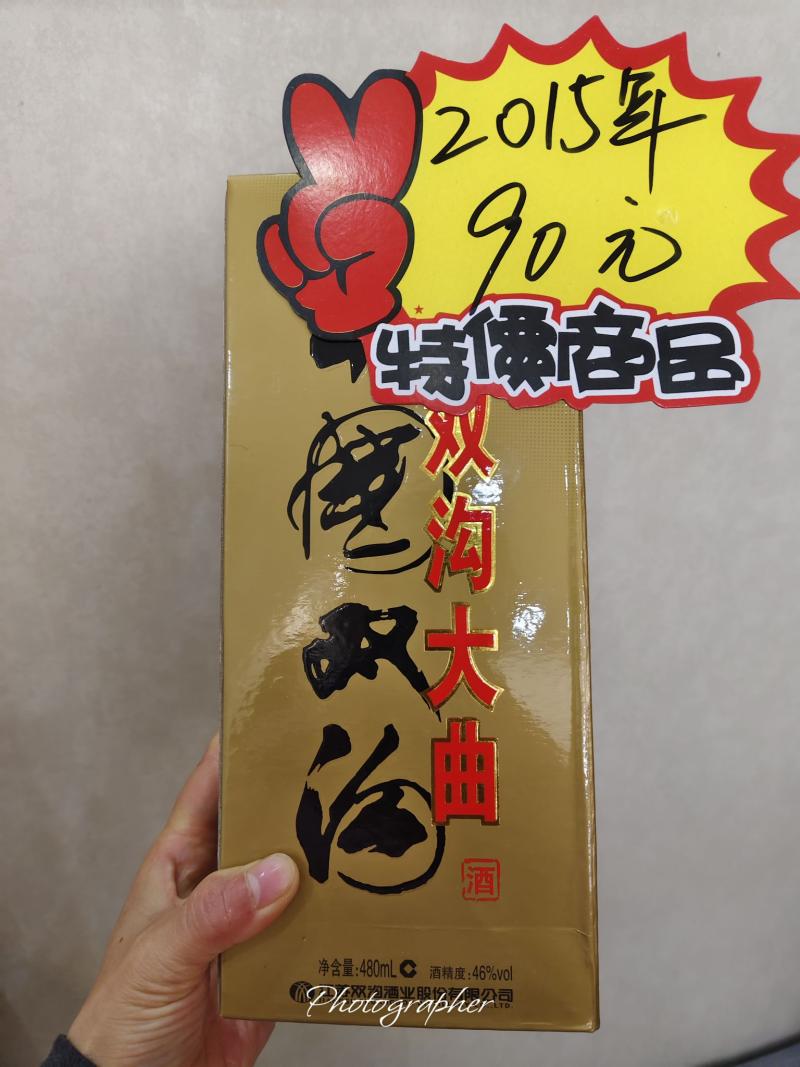 2015年
90元
特價商品
双沟大曲
國双沟
酒
净含量:480mL 酒精度:46%vol
江苏双沟酒业股份有限公司
Photographer